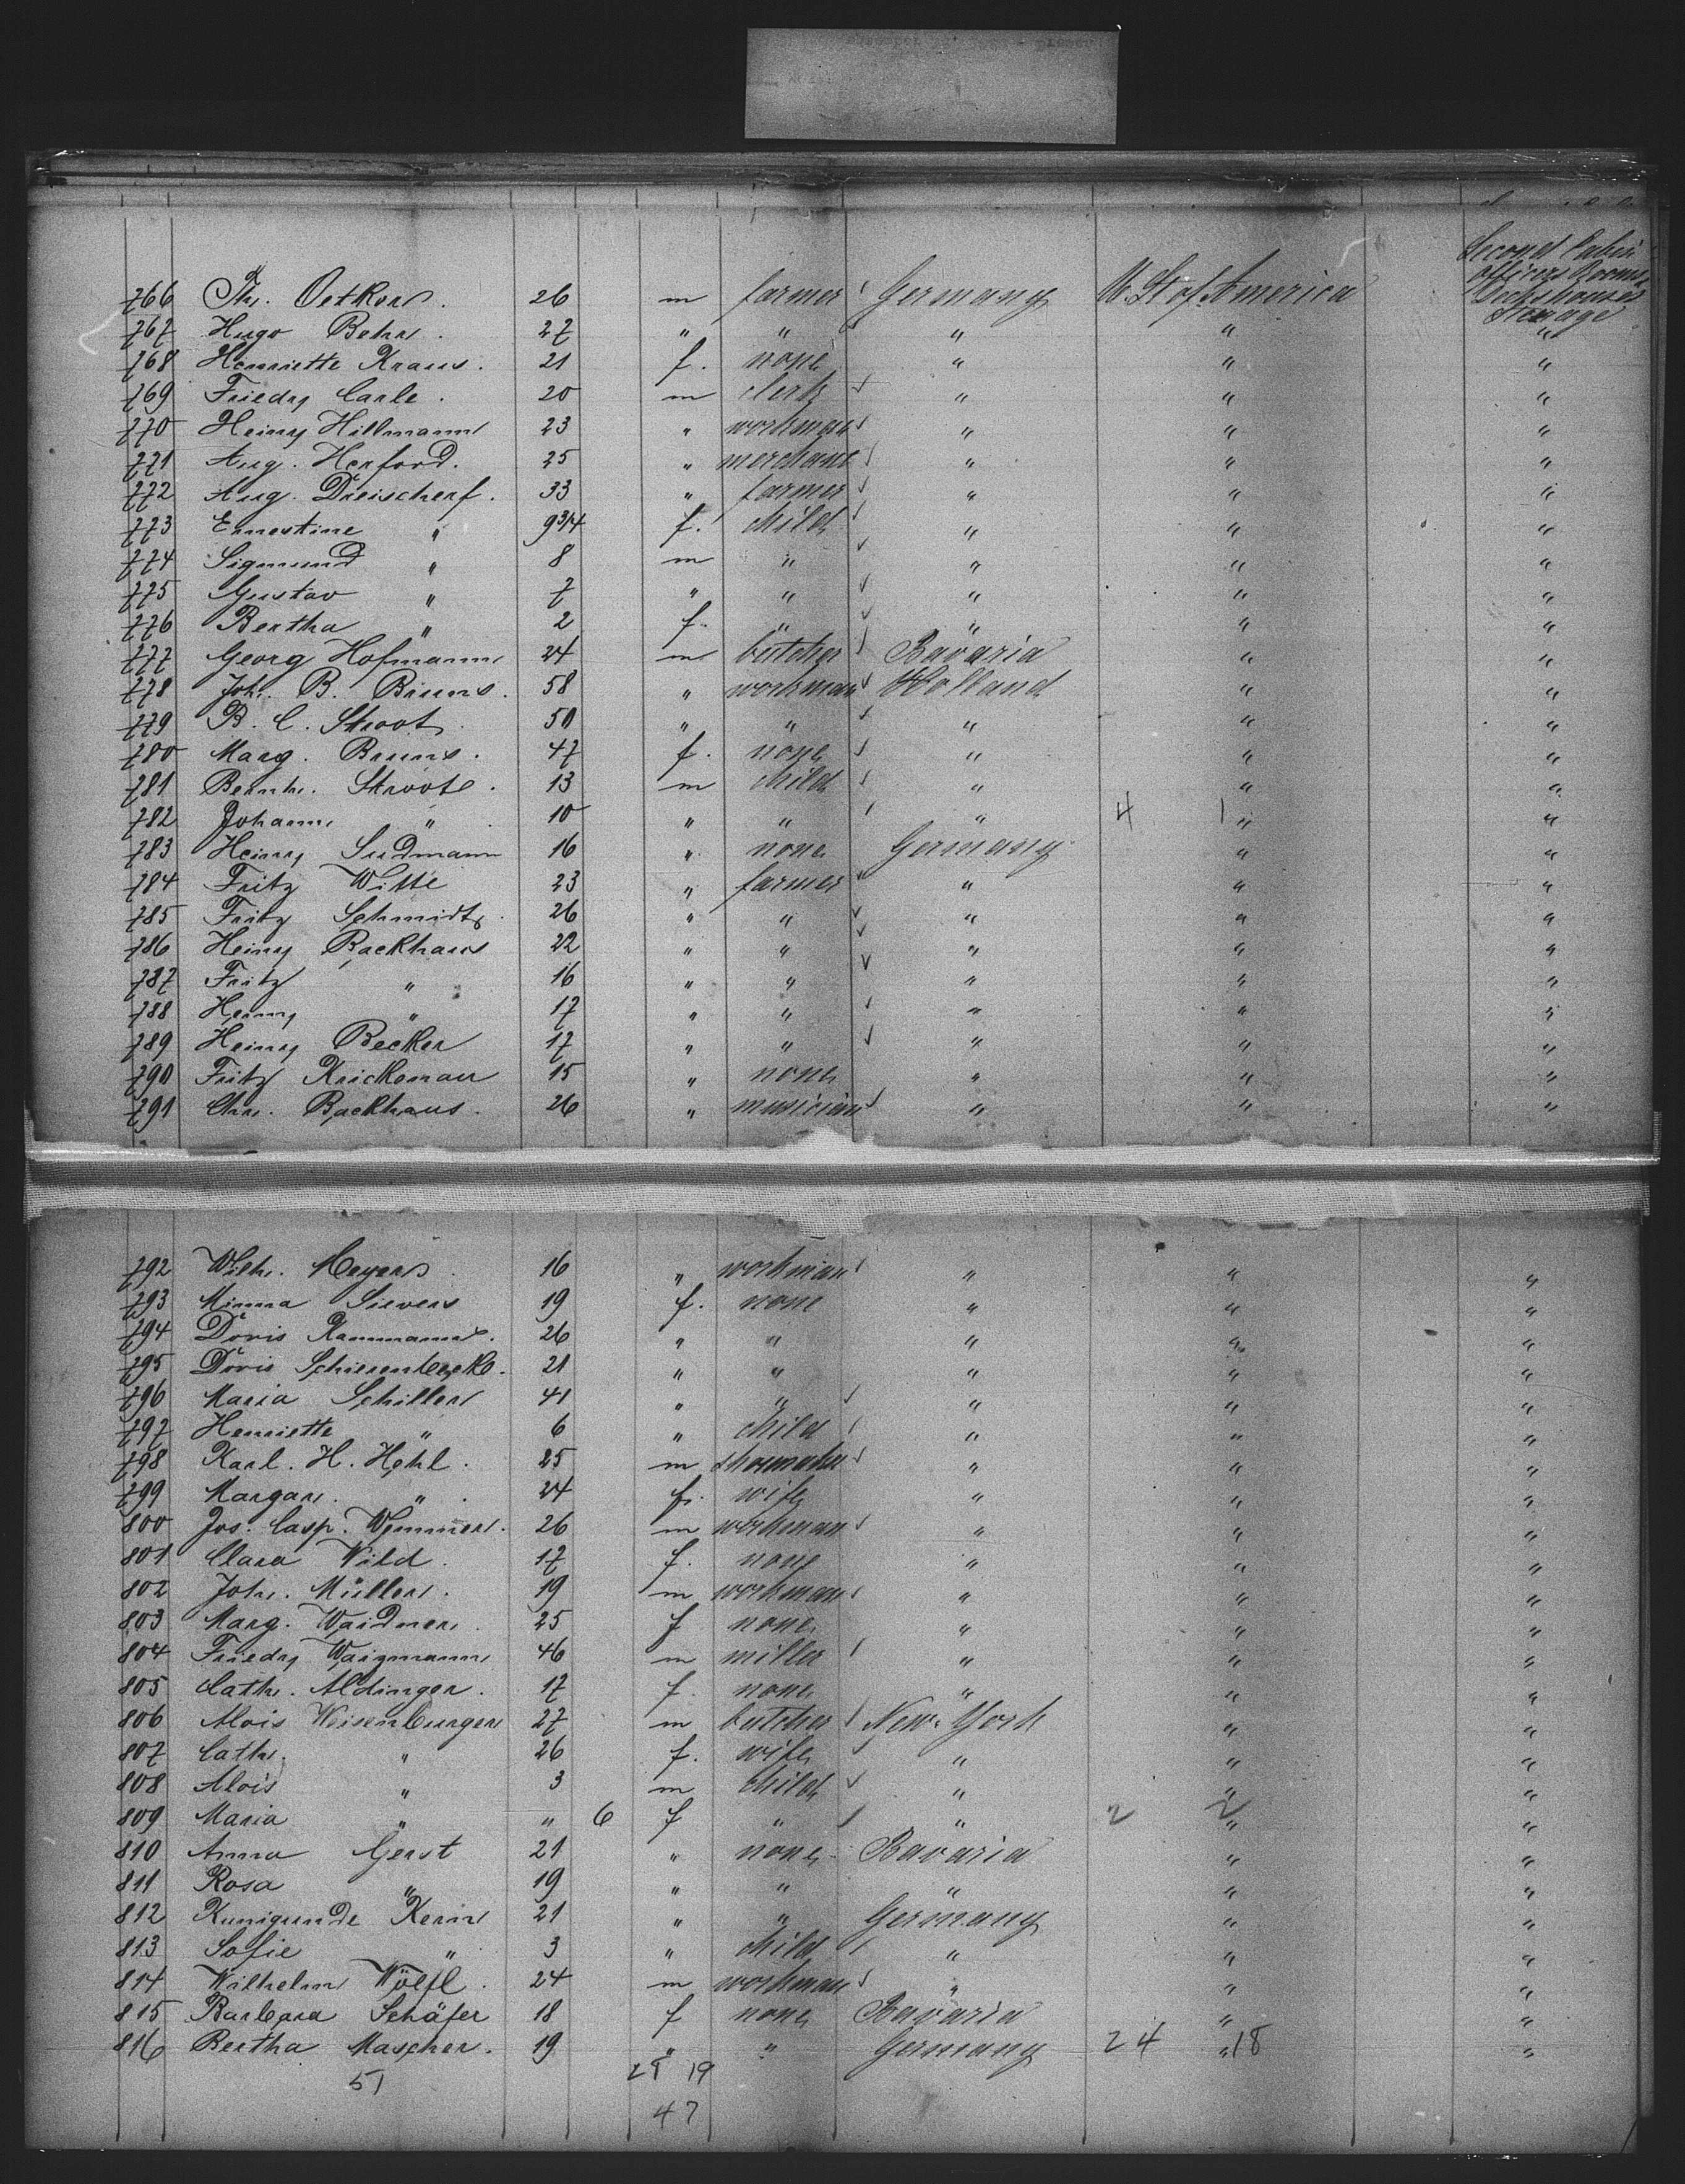 Second Cabin
officers Rooms
Deckhouses
Steerage
766 Th. Oetkers. 26 m farmer Germany U. St of America
767 Hugo Behre. 27 " " " " "
768 Henriette Kraus. 21 f. none " " "
769 Friedr Carle. 20 m clerk " " "
770 Heinr Hillmann 23 " workman " " "
771 Aug. Herford. 25 " merchant " " "
772 Aug. Dreischerf. 33 " farmer " " "
773 Ernestine " 9 3/4 f. child " " "
774 Sigmund " 8 m " " " "
775 Gustav " 7 " " " " "
776 Bertha " 2 f. " " " "
777 Georg Hofmann 24 m butcher Bavaria " "
778 Joh. B. Bruns. 58 " workman Holland " "
779 B. C. Stroot 50 " " " " "
780 Marg. Bruns. 47 f. none " " "
781 Bernh. Stroote. 13 m child " " "
782 Johann " 10 " " " 4 1 " "
783 Heinr Sudmann 16 " none Germany " "
784 Fritz Witte 23 " farmer " " "
785 Fritz Schmidt 26 " " " " "
786 Heinr Backhaus 22 " " " " "
787 Fritz " 16 " " " " "
788 Henny " 17 " " " " "
789 Heinr Becker 17 " " " " "
790 Fritz Krickemau 15 " none " " "
791 Chr. Backhaus. 26 " musician " " "
792 Wilh. Meyers 16 " workman " " "
793 Minna Sievers 19 f. none " " "
794 Doris Kammann. 26 " " " " "
795 Doris 21 " " " " "
796 Maria Schiller 41 " " " " "
797 Henriette " 6 " child " " "
798 Karl. H. Hehl. 25 m shoemaker " " "
799 Margar. " 24 f. wife " " "
800 Jos. Casp. Wemmer. 26 m workman " " "
801 Clara Wild. 17 f. none " " "
802 Joh. Müller. 19 m workman " " "
803 Marg. Waidner. 25 f none " " "
804 Friedr Waigmann 46 m miller " " "
805 Cath. Aldinger. 17 f. none " " "
806 Alois Weisenburger 27 m butcher New-York " "
807 Cath. " 26 f. wife " " "
808 Alois " 3 m child " " "
809 Maria " " 6 f " " 2 2 " "
810 Anna Gerst 21 " none Bavaria " "
811 Rosa " 19 " " " " "
812 Kunigunde Kern 21 " " Germany " "
813 Sofie " 3 " child " " "
814 Wilhelm Wölfl. 24 m workman " " "
815 Barbara Schäfer 18 f none Bavaria " "
816 Bertha Mascher. 19 " " Germany 24 " 18 "
51 28 19
47